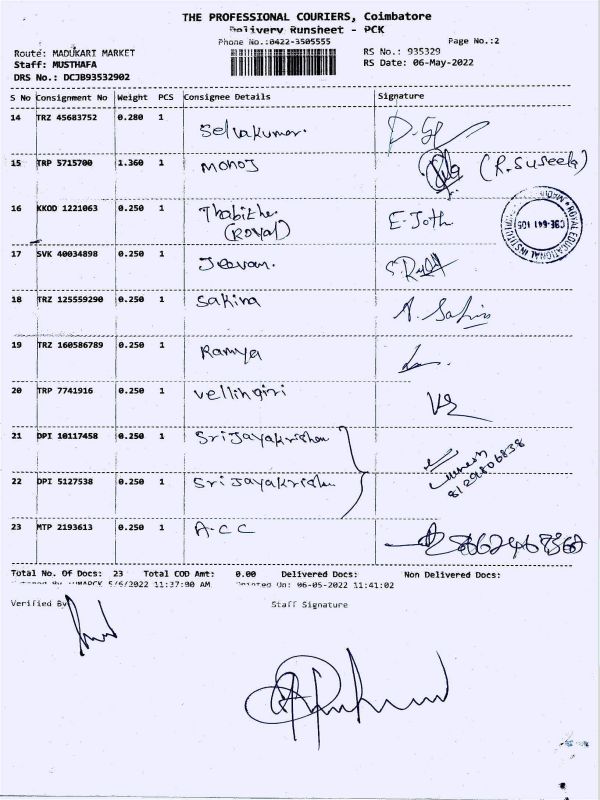 THE PROFESSIONAL COURIERS, Coimbatore
Delivery Runsheet - PCK
Phone No.:0422-3505555
Page No.:2
Route: MADUKARI MARKET
RS No.: 935329
Staff: MUSTHAFA
RS Date: 06-May-2022
DRS No.: DCJB93532902
S No Consignment No Weight PCS Consignee Details Signature
14 TRZ 45683752 0.280 1 Selvakumar.
15 TRP 5715700 1.360 1 Monoj (R.Suseela)
16 KKOD 1221063 0.250 1 Thabitha. E-Joth
(Royal)
ROYAL EDUCATIONAL INSTITUTION
CBE-641 105
17 SVK 40034898 0.250 1 Jeevan.
18 TRZ 125559290 0.250 1 Sakina
19 TRZ 160586789 0.250 1 Ramya
20 TRP 7741916 0.250 1 Vellingiri
21 DPI 10117458 0.250 1 Srijayakrishna
22 DPI 5127538 0.250 1 Srijayakrishna
8129806838
23 MTP 2193613 0.250 1 A.C.C
Total No. Of Docs: 23 Total COD Amt: 0.00 Delivered Docs: Non Delivered Docs:
5/6/2022 11:37:00 AM Printed On: 06-05-2022 11:41:02
Verified By
Staff Signature